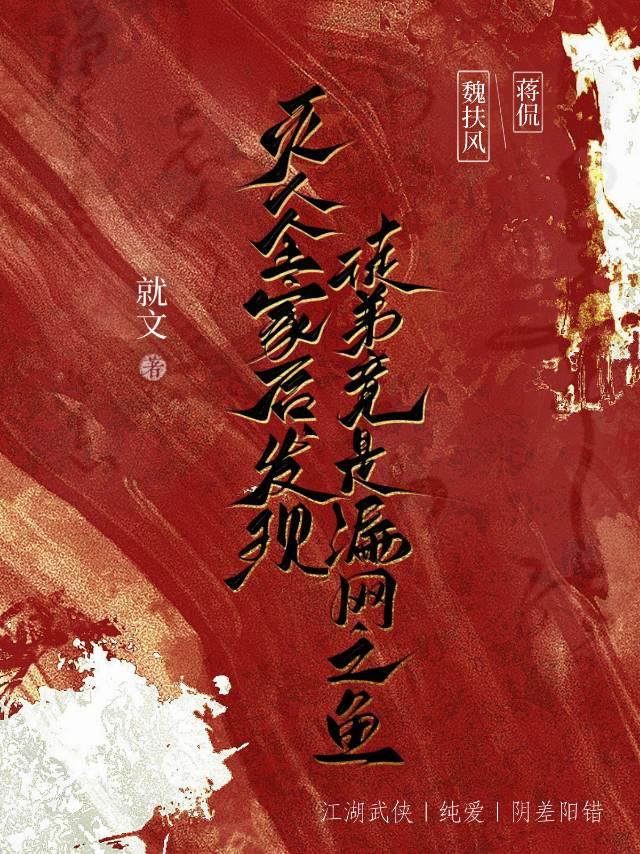 蒋侃
魏扶风
灭人全家后发现
徒弟竟是漏网之鱼
就文 著
江湖武侠｜纯爱｜阴差阳错